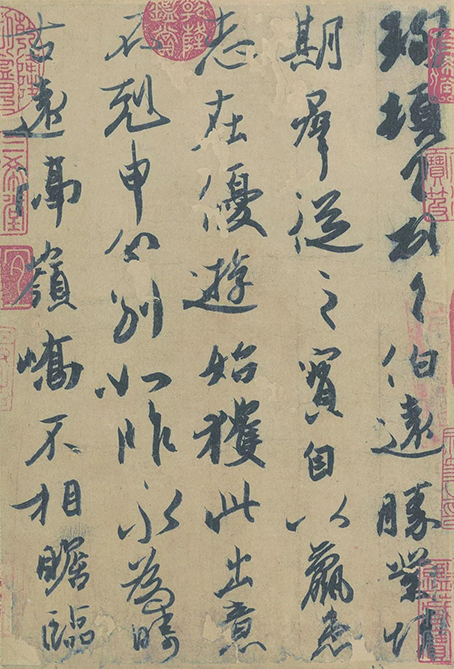 珣頓首頓首伯遠勝業情
期群從之寶自以羸患
志在優遊始獲此出意
不剋申分別如昨永為疇
古遠隔嶺嶠不相瞻臨